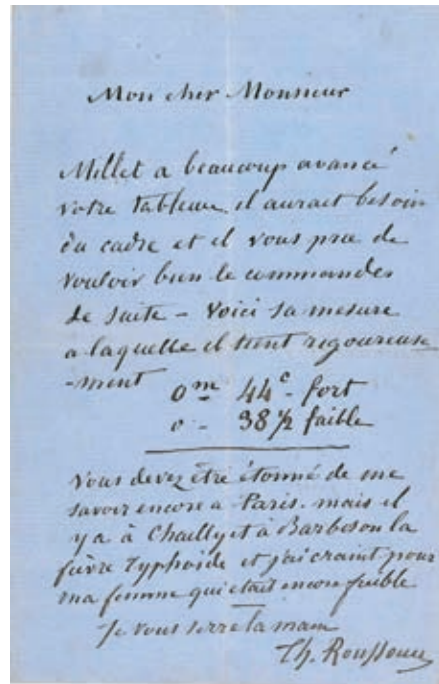 Mon cher Monsieur
Millet a beaucoup avancé
votre tableau il aurait besoin
du cadre et il vous prie de
vouloir bien le commander
de suite - Voici sa mesure
a laquelle il tient rigoureuse
-ment
0m 44c- fort
0 - 38 1/2 faible
Vous devez être étonné de me
savoir encore a Paris. mais il
y a à Chailly et à Barbison la
fièvre typhoïde et j'ai craint pour
ma femme qui etait encore faible
Je vous serre la main
Th. Rousseau